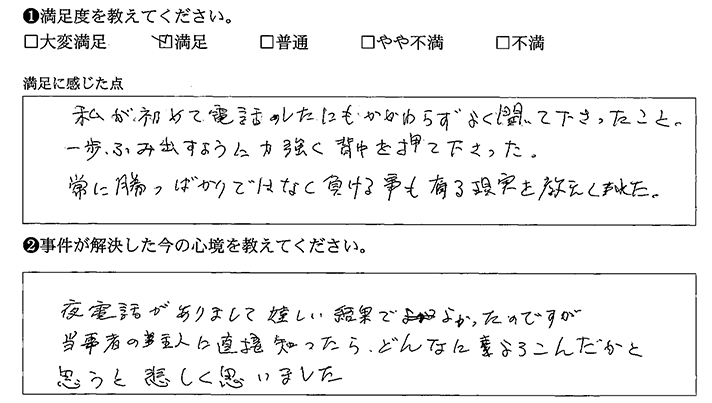 ❶満足度を教えてください。
□大変満足 ☑満足 □普通 □やや不満 □不満
満足に感じた点
私が、初めて電話のしたにもかかわらずよく聞いて下さったこと。
一歩、ふみ出すように力強く背中を押て下さった。
常に勝つばかりではなく負ける事も有る現実を教えくれた。
❷事件が解決した今の心境を教えてください。
夜電話がありまして嬉しい結果でよかったのですが
当事者の主人に直接知ったら、どんなによろこんだかと
思うと悲しく思いました